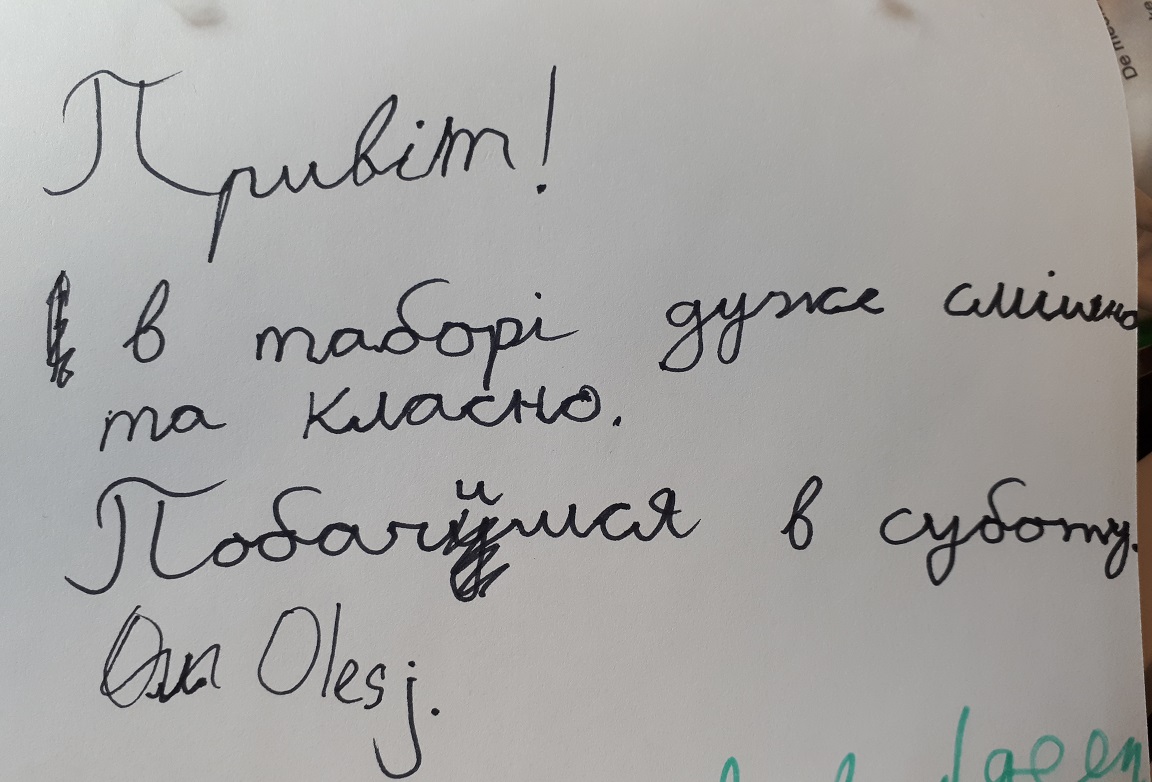 Привіт!
в таборі дуже смішно
та класно.
Побачимся в суботу.
Olesj.